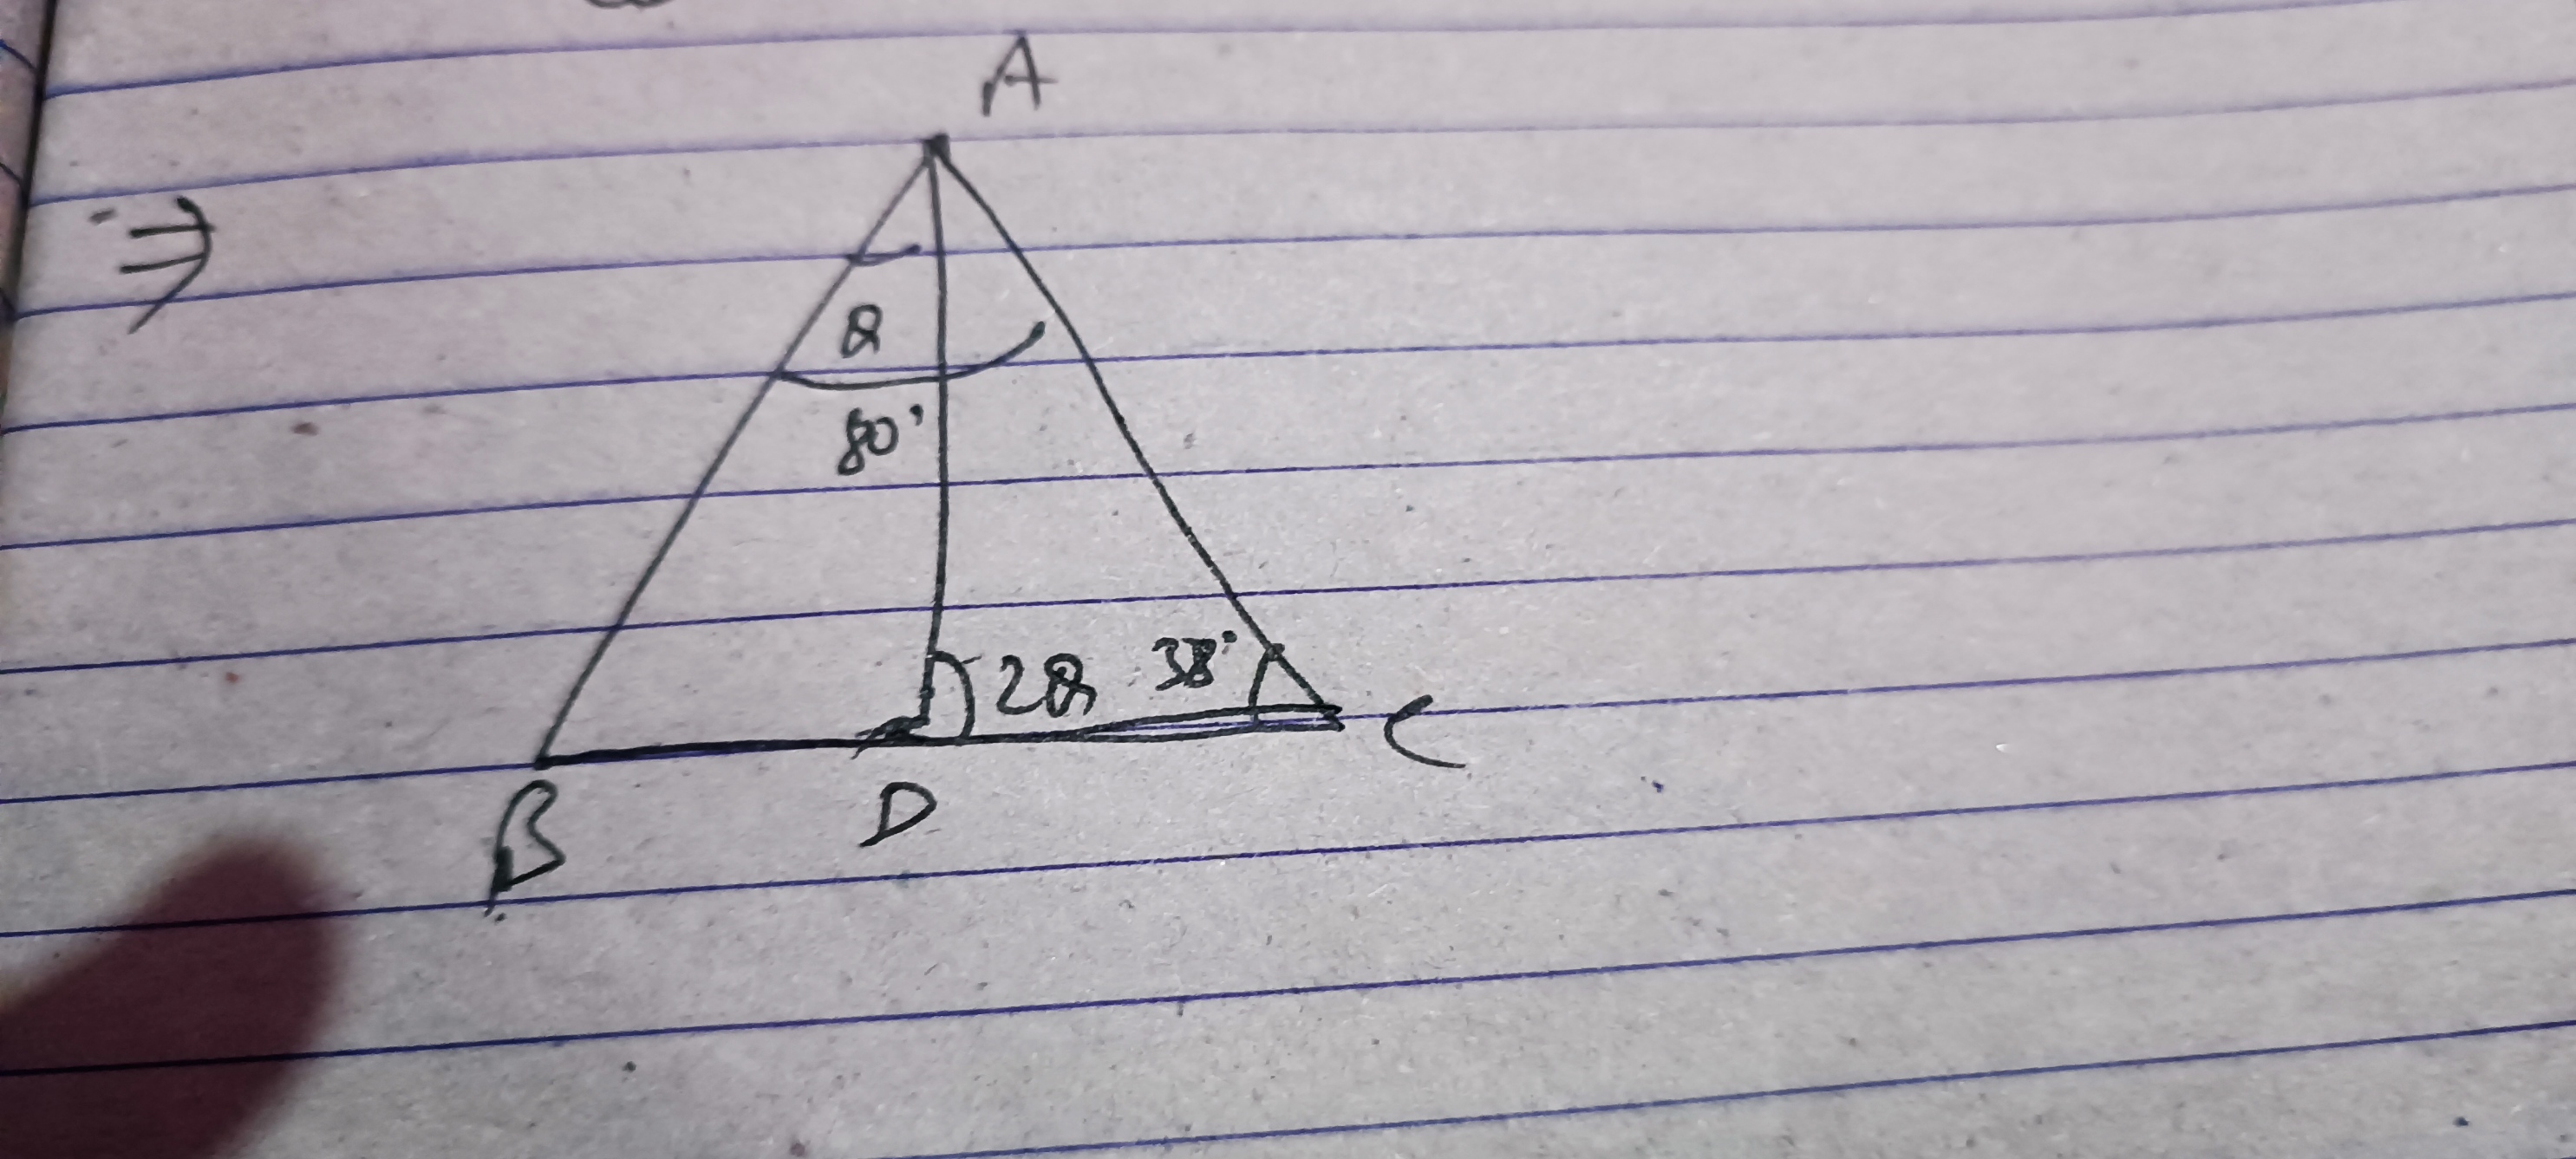 A
⇒
θ
80°
2θ 38°
B D C